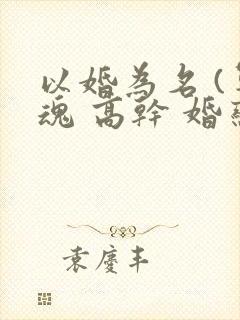 以婚為名(
魂 高幹 婚
袁慶丰